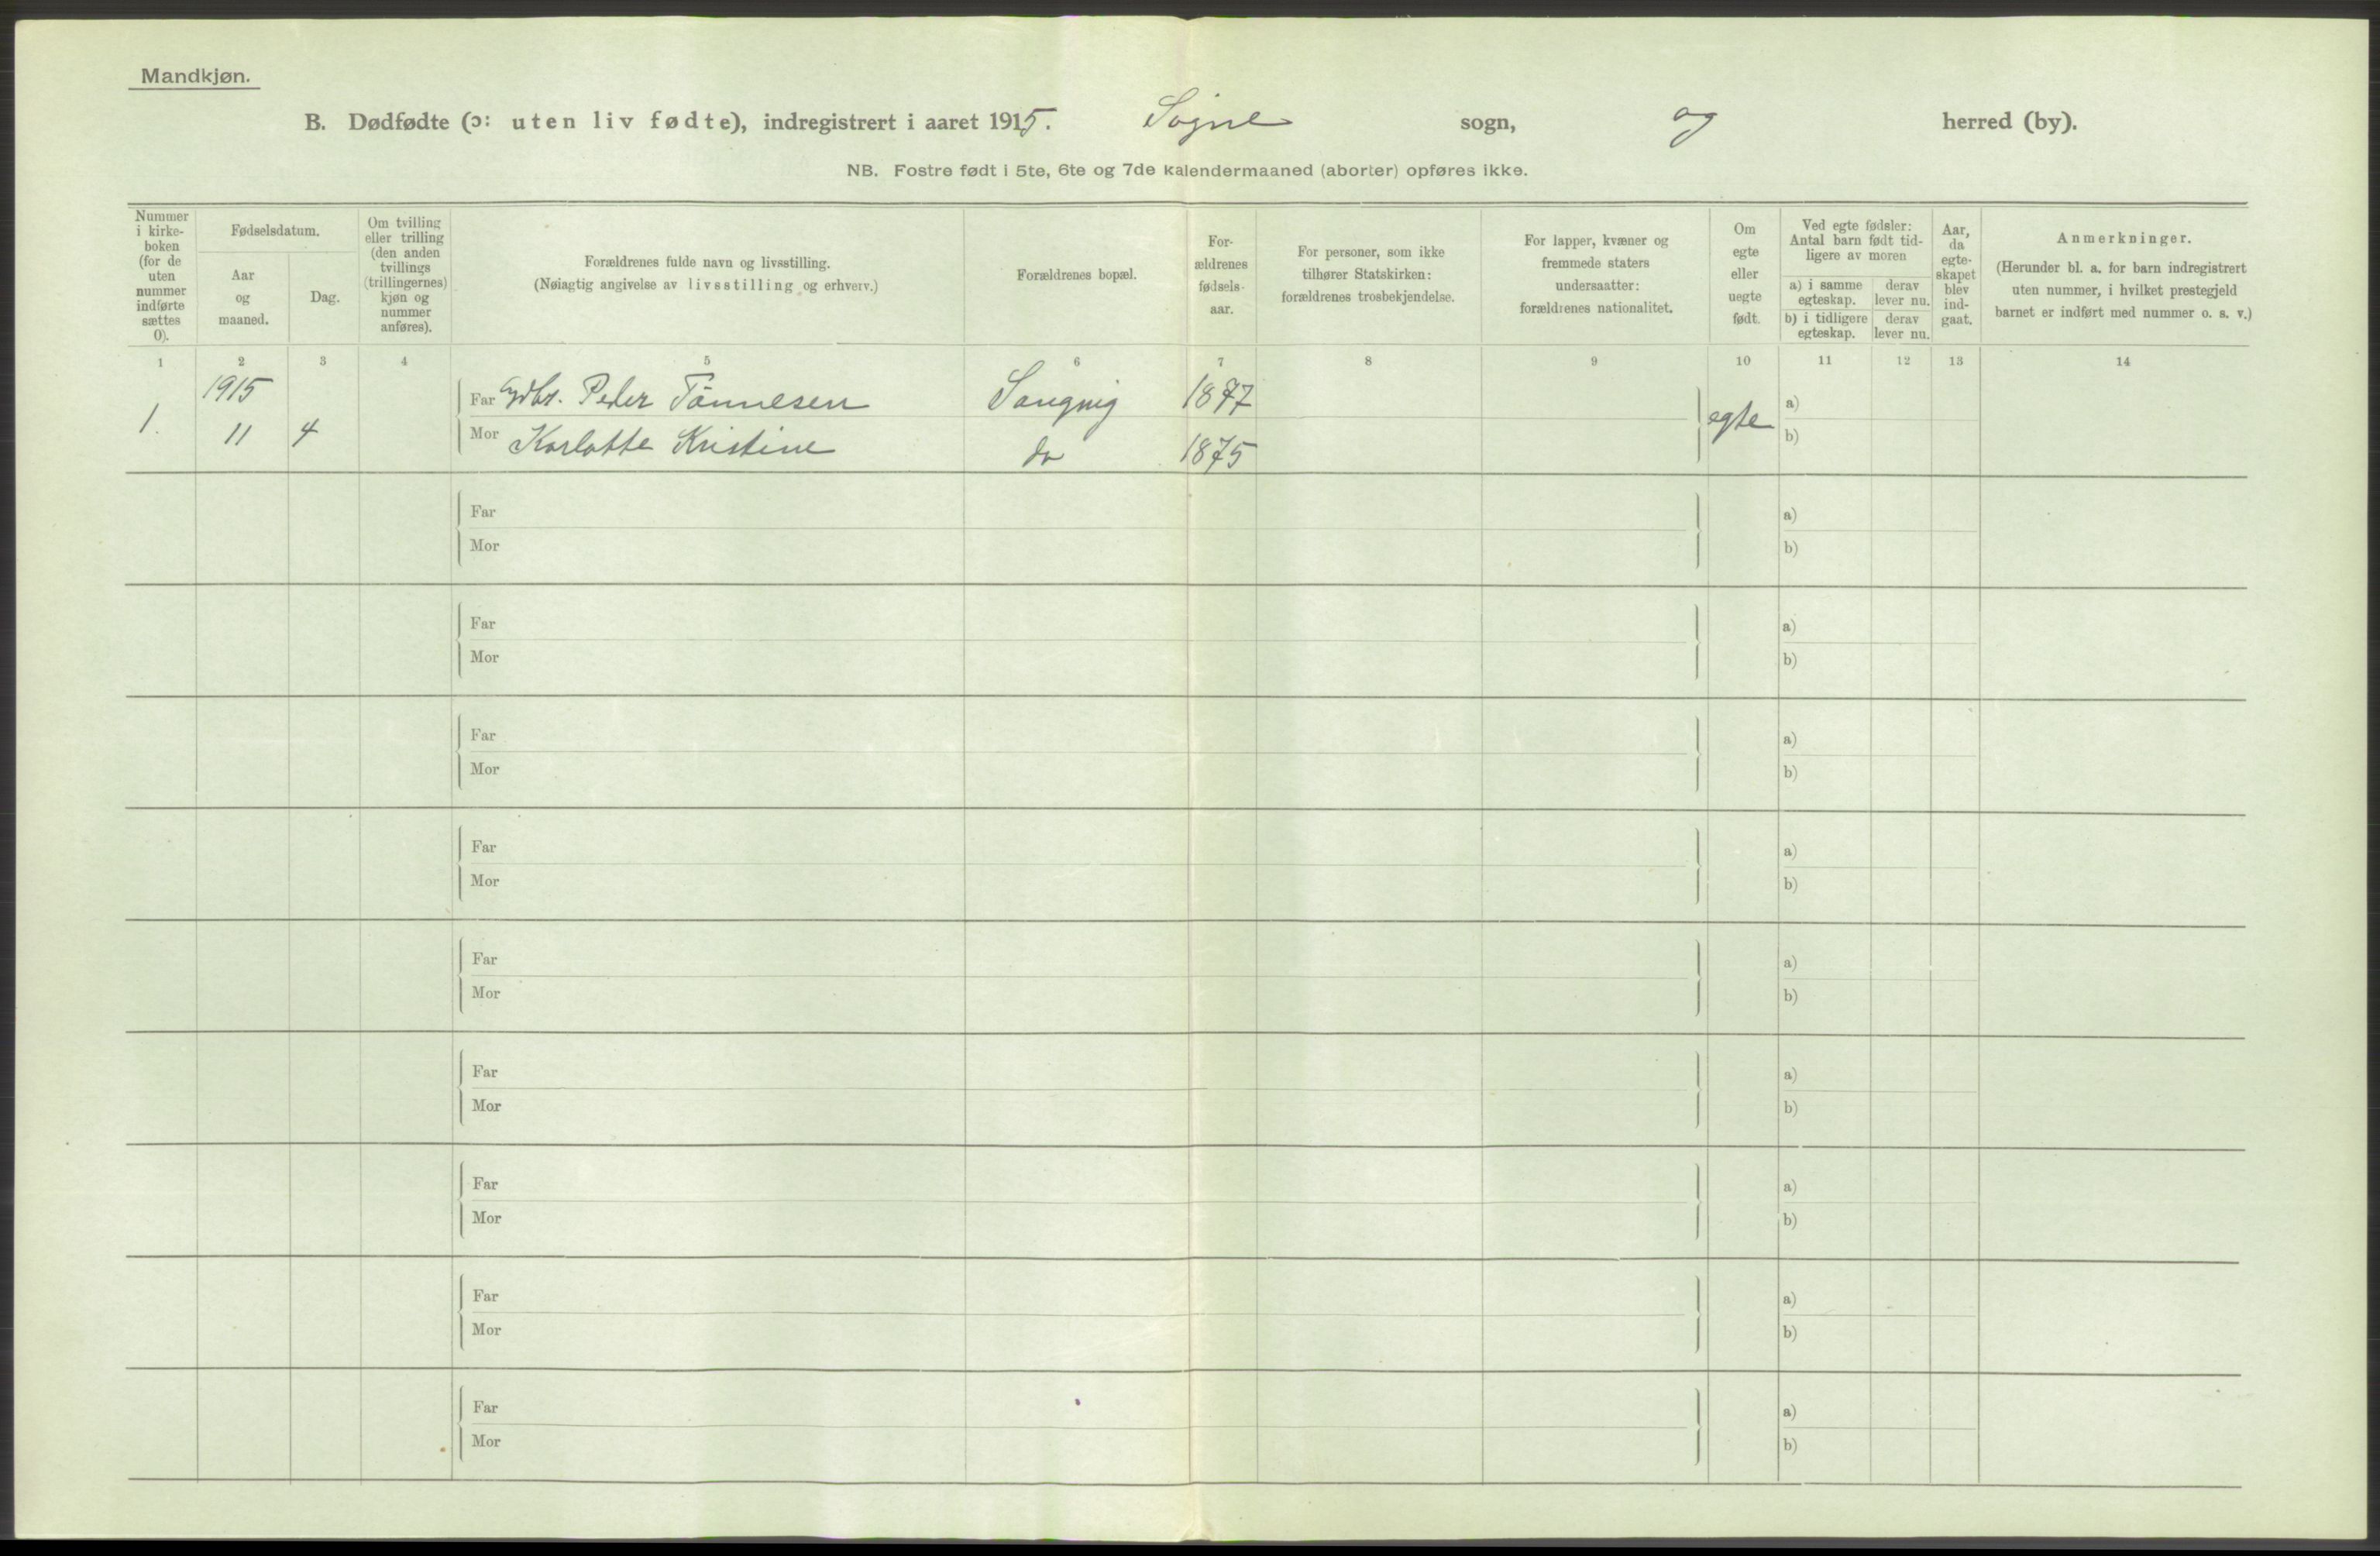 Mandkjøn.
B. Dødfødte (ɔ: uten liv fødte), indregistrert i aaret 1915. Søgne sogn, og herred (by).
NB. Fostre født i 5te, 6te og 7de kalendermaaned (aborter) opføres ikke.
Nummer i kirke-boken (for de uten nummer indførte sættes 0).
Fødselsdatum.
Aar og maaned.
Dag.
Om tvilling eller trilling (den anden tvillings (trillingernes) kjøn og nummer anføres).
Forældrenes fulde navn og livsstilling.
(Nøiagtig angivelse av livsstilling og erhverv.)
Forældrenes bopæl.
For-ældrenes fødsels-aar.
For personer, som ikke tilhører Statskirken: forældrenes trosbekjendelse.
For lapper, kvæner og fremmede staters undersaatter: forældrenes nationalitet.
Om egte eller uegte født.
Ved egte fødsler: Antal barn født tid-ligere av moren
a) i samme egteskap.
derav lever nu.
b) i tidligere egteskap.
derav lever nu.
Aar, da egte-skapet blev ind-gaat.
Anmerkninger.
(Herunder bl. a. for barn indregistrert uten nummer, i hvilket prestegjeld barnet er indført med nummer o. s. v.)
1 2 3 4 5 6 7 8 9 10 11 12 13 14
1915
Far Gdbr. Peder Tønnesen Sangvig 1877 a)
1. 11 4 egte
Mor Karlotte Kristine do 1875 b)
Far a)
Mor b)
Far a)
Mor b)
Far a)
Mor b)
Far a)
Mor b)
Far a)
Mor b)
Far a)
Mor b)
Far a)
Mor b)
Far a)
Mor b)
Far a)
Mor b)